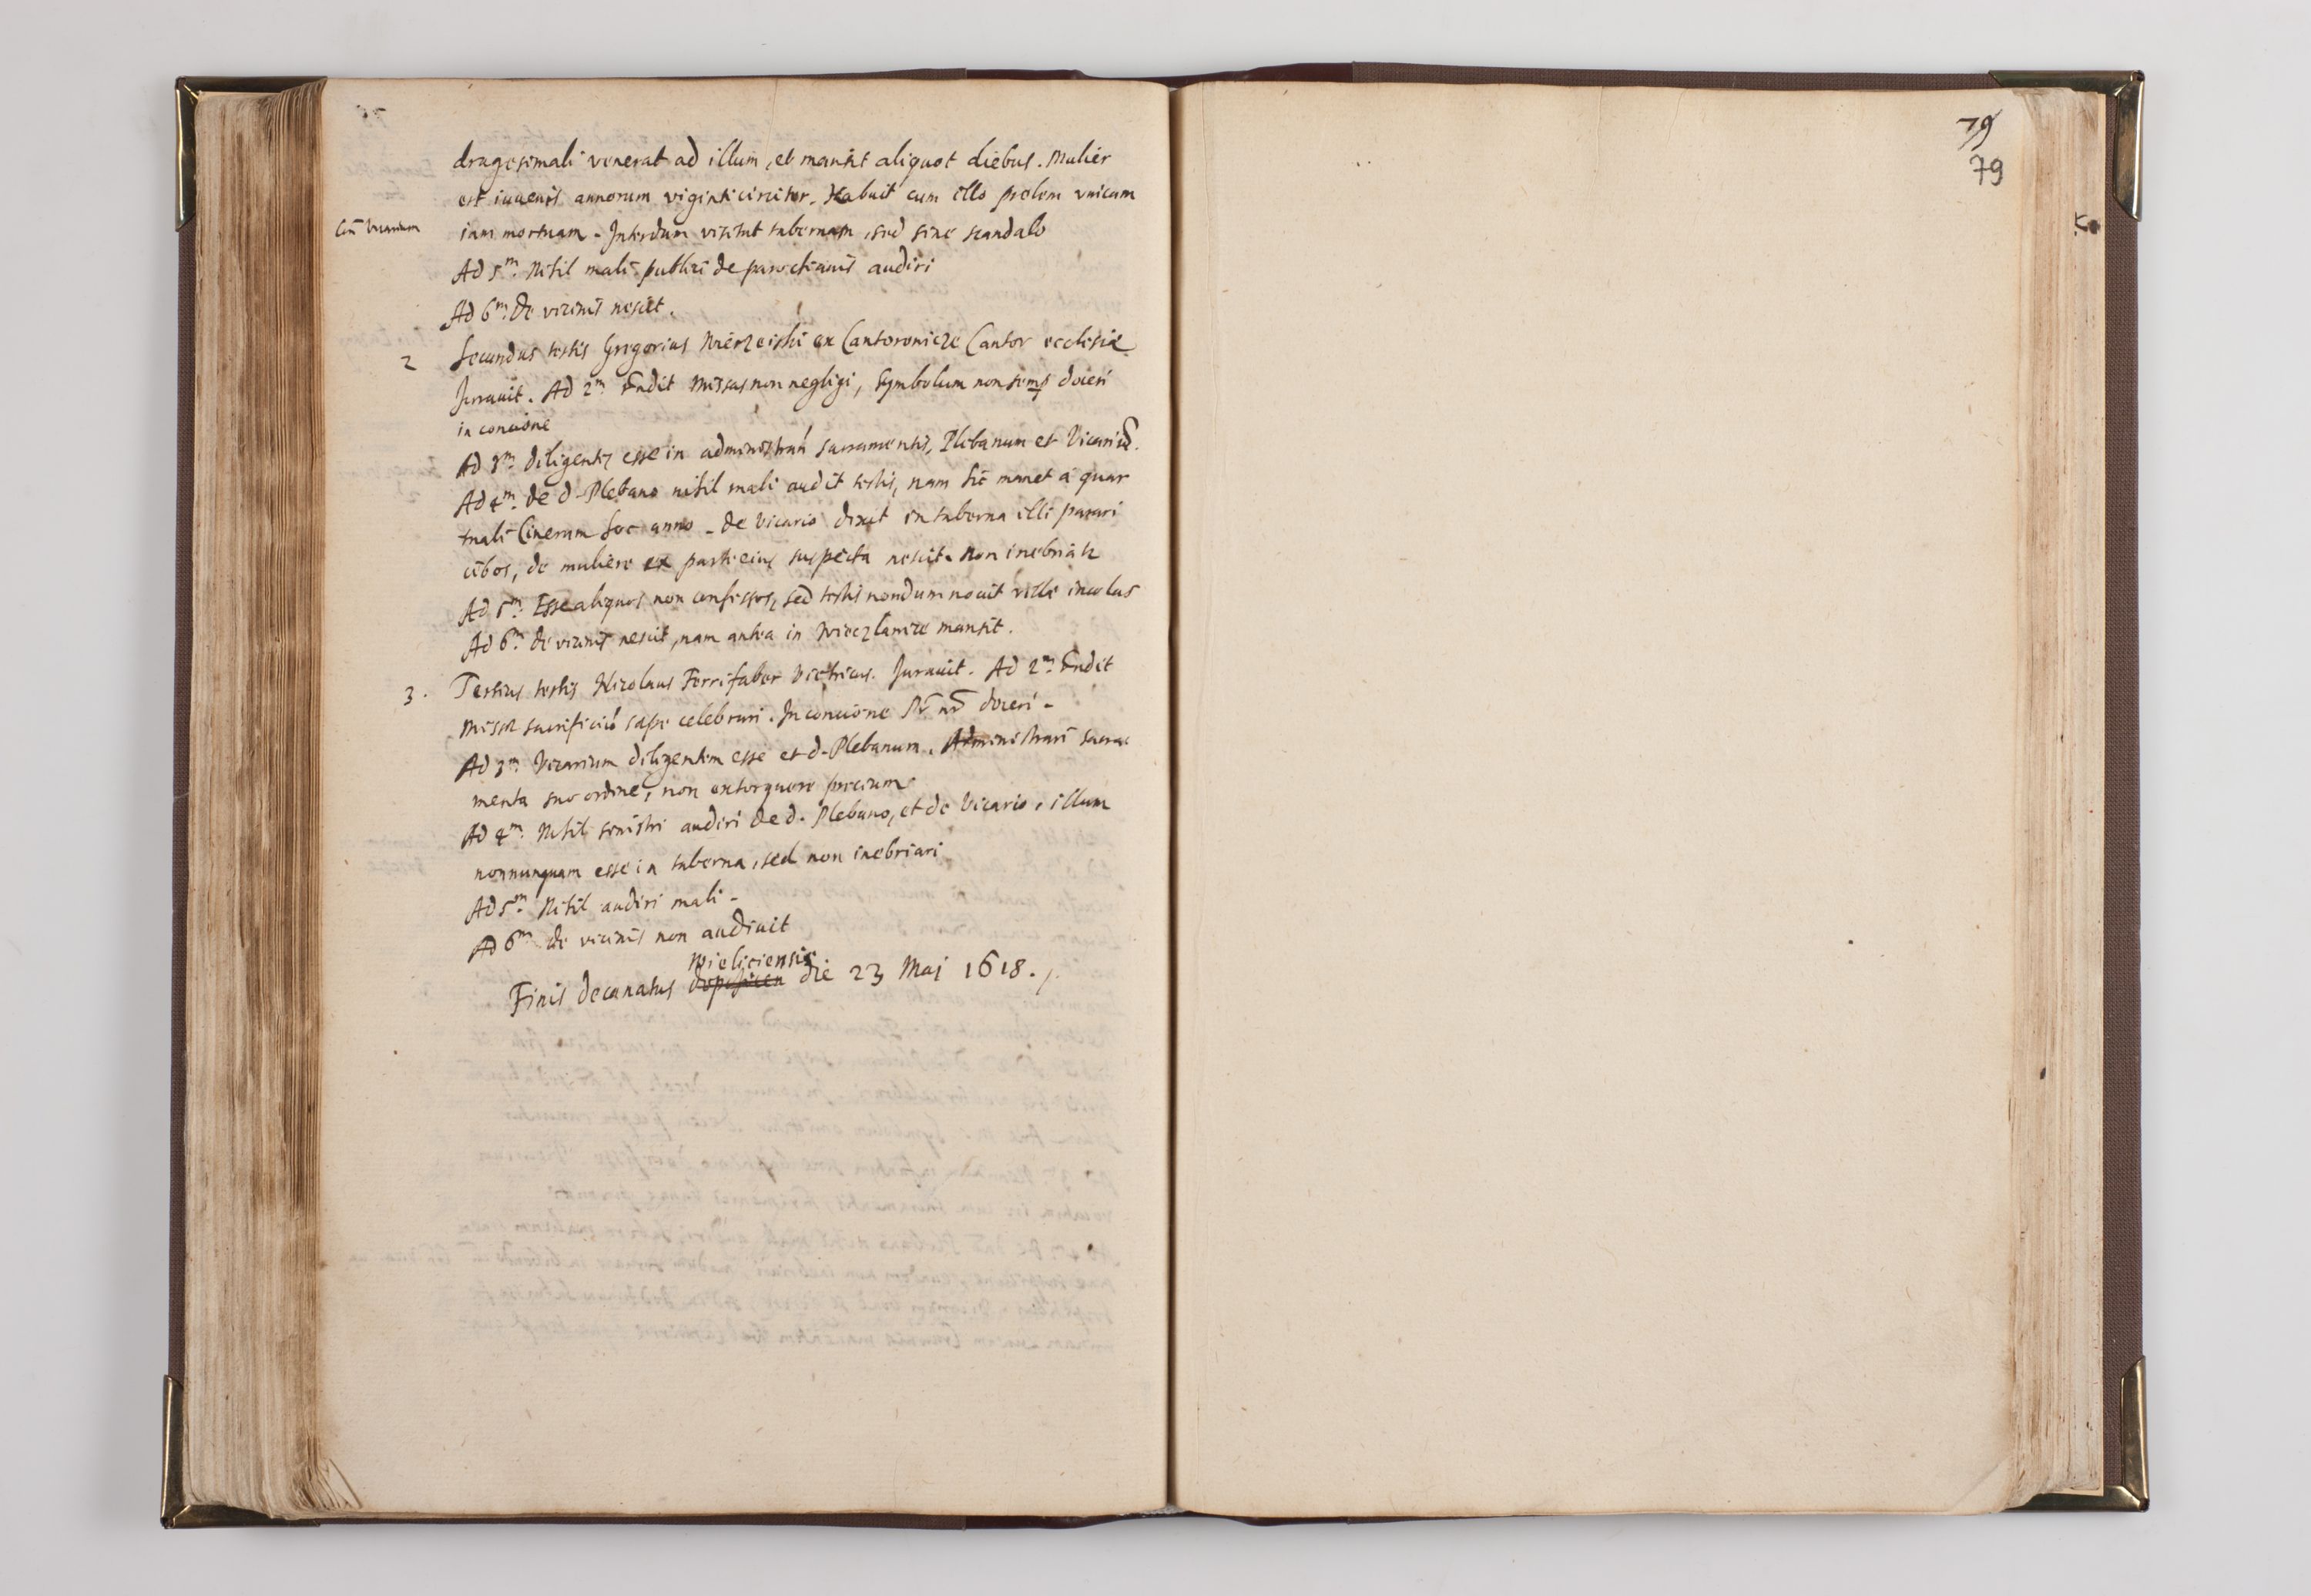 dragesimali venerat ad illum, et mansit aliquot diebus. Mulier
est iuuenis annorum viginti circiter. Habuit cum illo prolem vnicam
iam mortuam - Interdum visitat tabernam, sed sine scandalo
Ad 5m. Nihil mali publici de parochianis audiri
Ad 6m. de vicinis nescit.
2 Secundus testis Gregorius ex Cantor ecclesiæ
Jurauit. Ad 2m. Rndit Missas non negligi, Symbolum non semp doceri
in concione
Ad 3m. diligentes esse in administran sacramentis, Plebanum et Vicariu.
Ad 4m. de d. Plebano nihil mali audit testis, nam hic manet a quar
tuali Cinerum hoc anno - de Vicario dixit in taberna illi parari
cibos, de muliere ex parte eius suspecta nescit. Non inebriatz
Ad 5m. Esse aliquos non confessos, sed testis nondum nouit villæ incolas
Ad 6m. de vicinis nescit, nam antea in mansit.
3. Tertius testis Nicolaus Ferrifaber Vitricus. Jurauit. Ad 2m. Rndit
Missæ sacrificiu sæpe celebrari. In concione Pr nr doceri -
Ad 3m. Vicarium diligentem esse et d. Plebanum. Administrari sacra
menta suo ordine, non extorquere precium
Ad 4m. Nihil sinistri audiri de d. Plebano, et de Vicario, illum
nonnunquam esse in taberna, sed non inebriari
Ad 5m. Nihil audiri mali -
Ad 6m. de vicinis non audiuit
Wieliciensis
Finis decanatus die 23 Maj 1618.
79
79